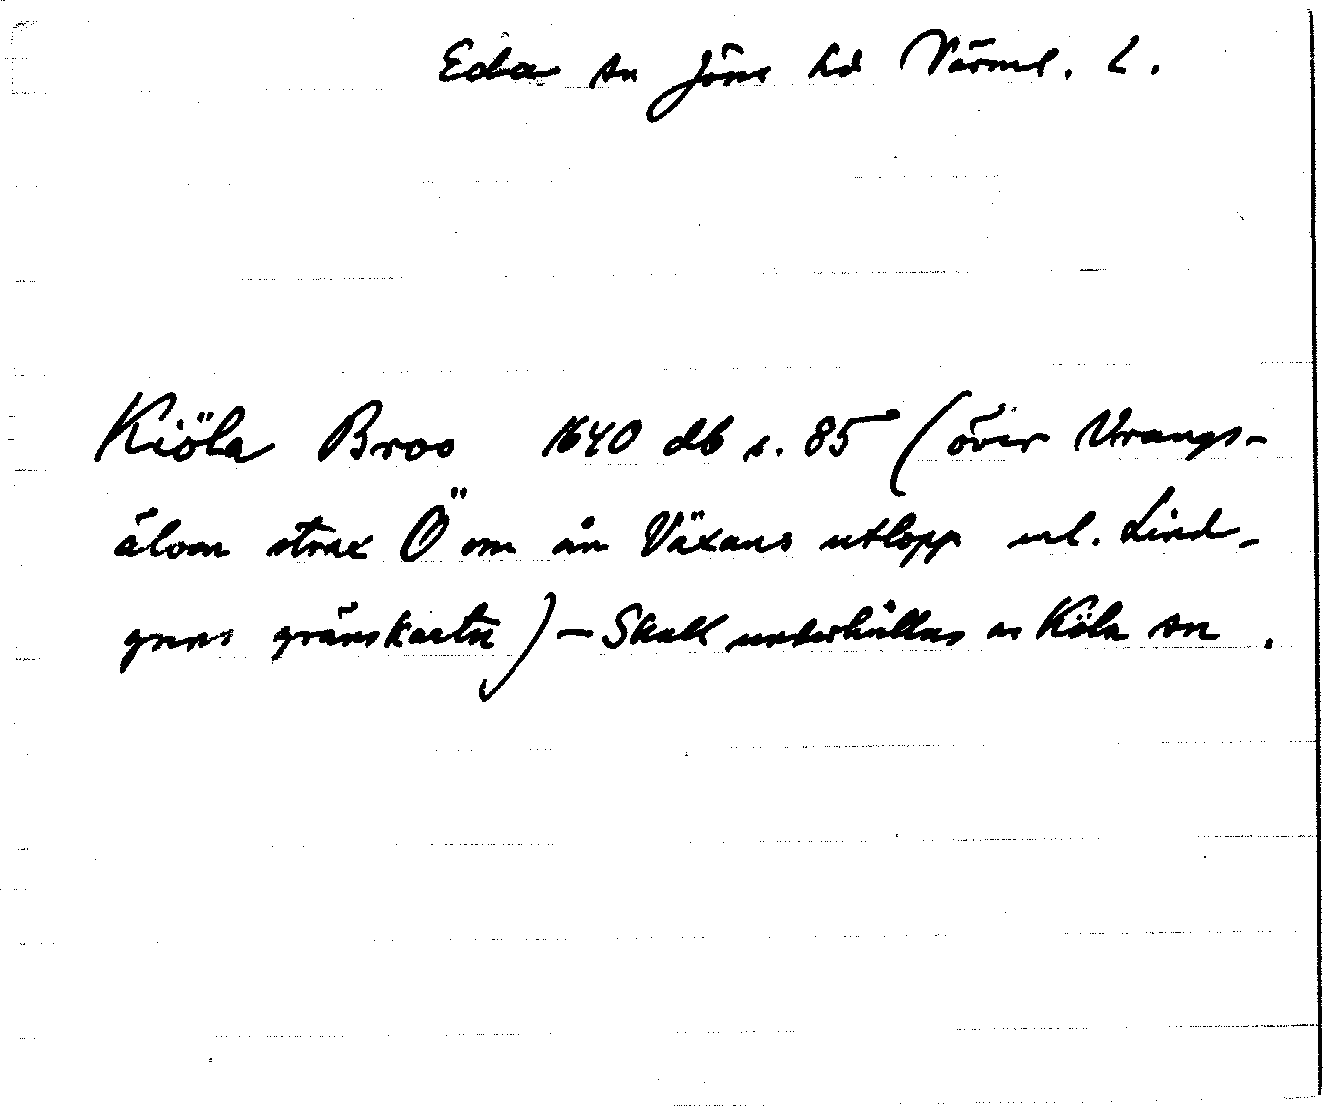 Eda sn Jösse hd Värml. L.
Kiöla Broo 1640 db s. 85 (över Vrangs-
älven strax Ö om ån Växans utlopp enl. Lind-
grens gränskarta) – Skall underhållas av Köla sn.